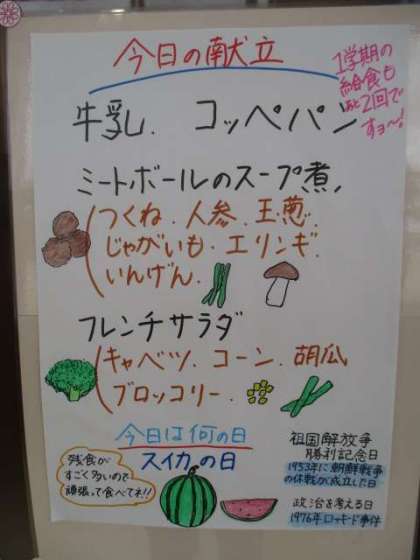 今日の献立
1学期の
給食も
あと2回で
すョ〜!
牛乳. コッペパン
ミートボールのスープ煮
つくね.人参.玉葱.
じゃがいも.エリンギ.
いんげん.
フレンチサラダ
キャベツ.コーン.胡瓜
ブロッコリー.
今日は何の日
スイカの日
残食が
すごく多いので
頑張って食べてネ!!
祖国解放争
勝利記念日
1953年に朝鮮戦争
の休戦が成立した日
政治を考える日
1976年ロッキード事件